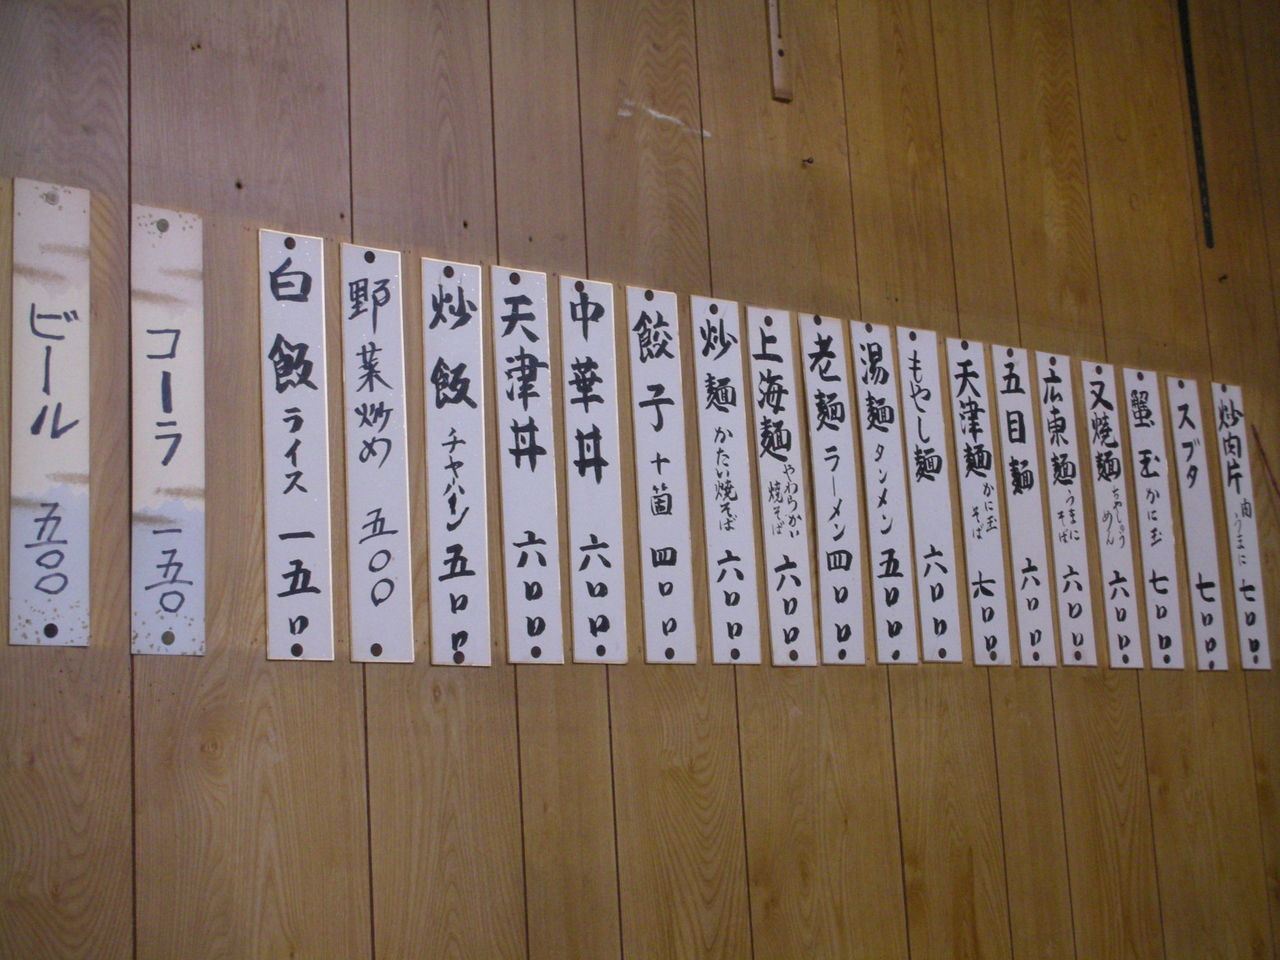 炒肉片 肉うまに 七〇〇
スブタ 七〇〇
蟹玉 かに玉 七〇〇
叉焼麺 ちゃしゅうめん 六〇〇
広東麺 うまにそば 六〇〇
五目麺 六〇〇
天津麺 かに玉そば 六〇〇
もやし麺 六〇〇
湯麺 タンメン 五〇〇
老麺 ラーメン 四〇〇
上海麺 やわらかい焼そば 六〇〇
炒麺 かたい焼そば 六〇〇
餃子 十箇 四〇〇
中華丼 六〇〇
天津丼 六〇〇
炒飯 チャーハン 五〇〇
野菜炒め 五〇〇
白飯 ライス 一五〇
コーラ 一五〇
ビール 五〇〇